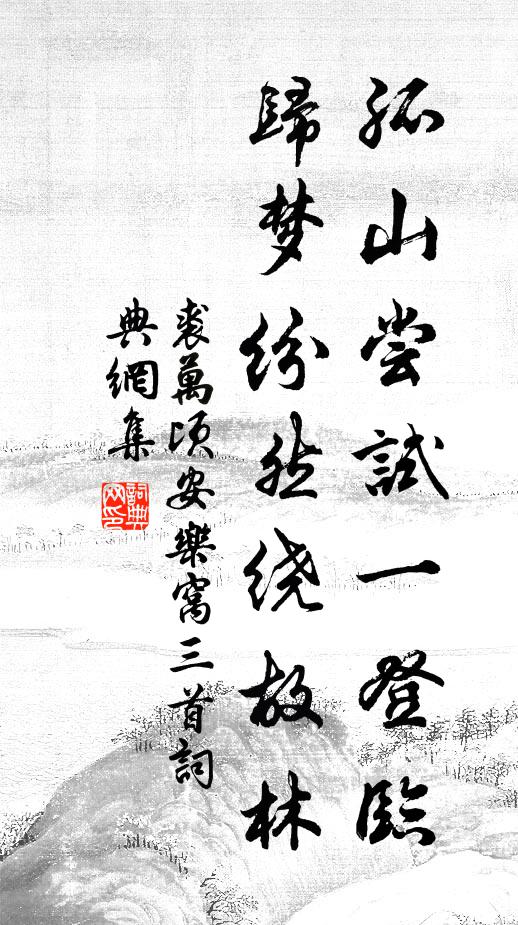 孤山尝試一登臨
歸梦纷然绕故林
裘萬頃安樂窩三首詞
典網集
詞典
网印